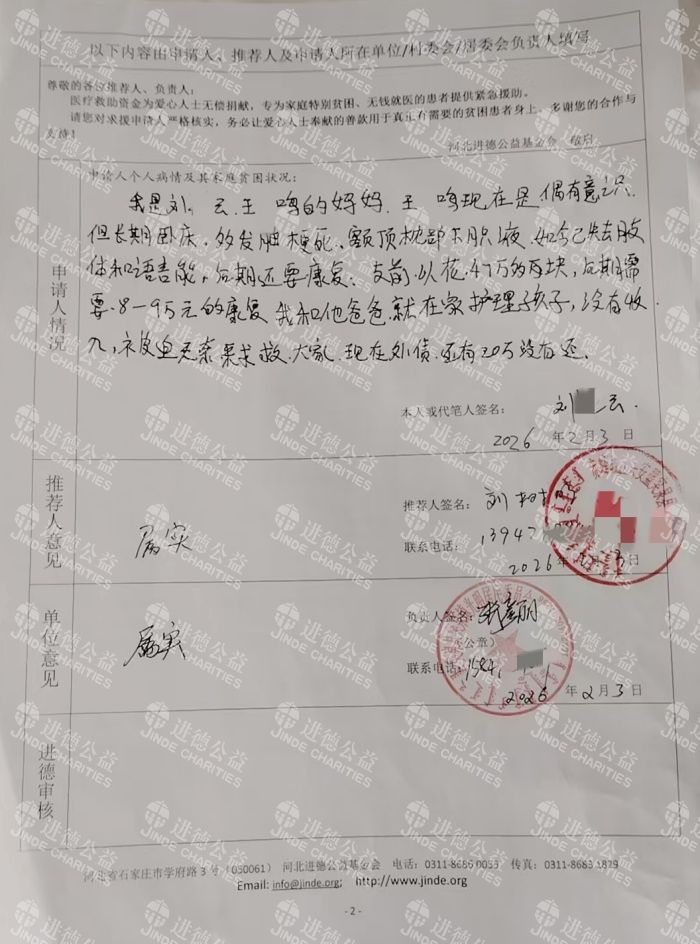 以下内容由申请人、推荐人及申请人所在单位/村委会/居委会负责人填写
尊敬的各位推荐人、负责人：
医疗救助资金为爱心人士无偿捐献，专为家庭特别贫困、无钱就医的患者提供紧急援助。
请您对求援申请人严格核实，务必让爱心人士奉献的善款用于真正有需要的贫困患者身上。多谢您的合作与
支持！
河北进德公益基金会 敬启
申请人情况
申请人个人病情及其家庭贫困状况：
我是刘 云.王 鸣的妈妈.王 鸣现在是偶有意识
但长期卧床.多发脑梗死、额顶枕部下积液.如今已失去肢
体和语言能，后期还要康复.支前以花.47万多块，后期需
要.8-9万元的康复 我和他爸爸.就在家护理孩子，没有收
入，被迫无奈要求救.大家.现在外债.还有20万没有还.
本人或代笔人签名： 刘 云.
2026 年 2 月 3 日
推荐人意见
属实
推荐人签名： 刘
联系电话： 13947
2026 3 日
单位意见
属实
负责人签名：
（公章）
联系电话：
2026 年 2 月 3 日
进德审核
河北省石家庄市学府路 3 号（050061） 河北进德公益基金会 电话：0311-8686 0033 传真：0311-8683 1829
Email: info@jinde.org; http://www.jinde.org
- 2 -
进德公益
JINDE CHARITIES